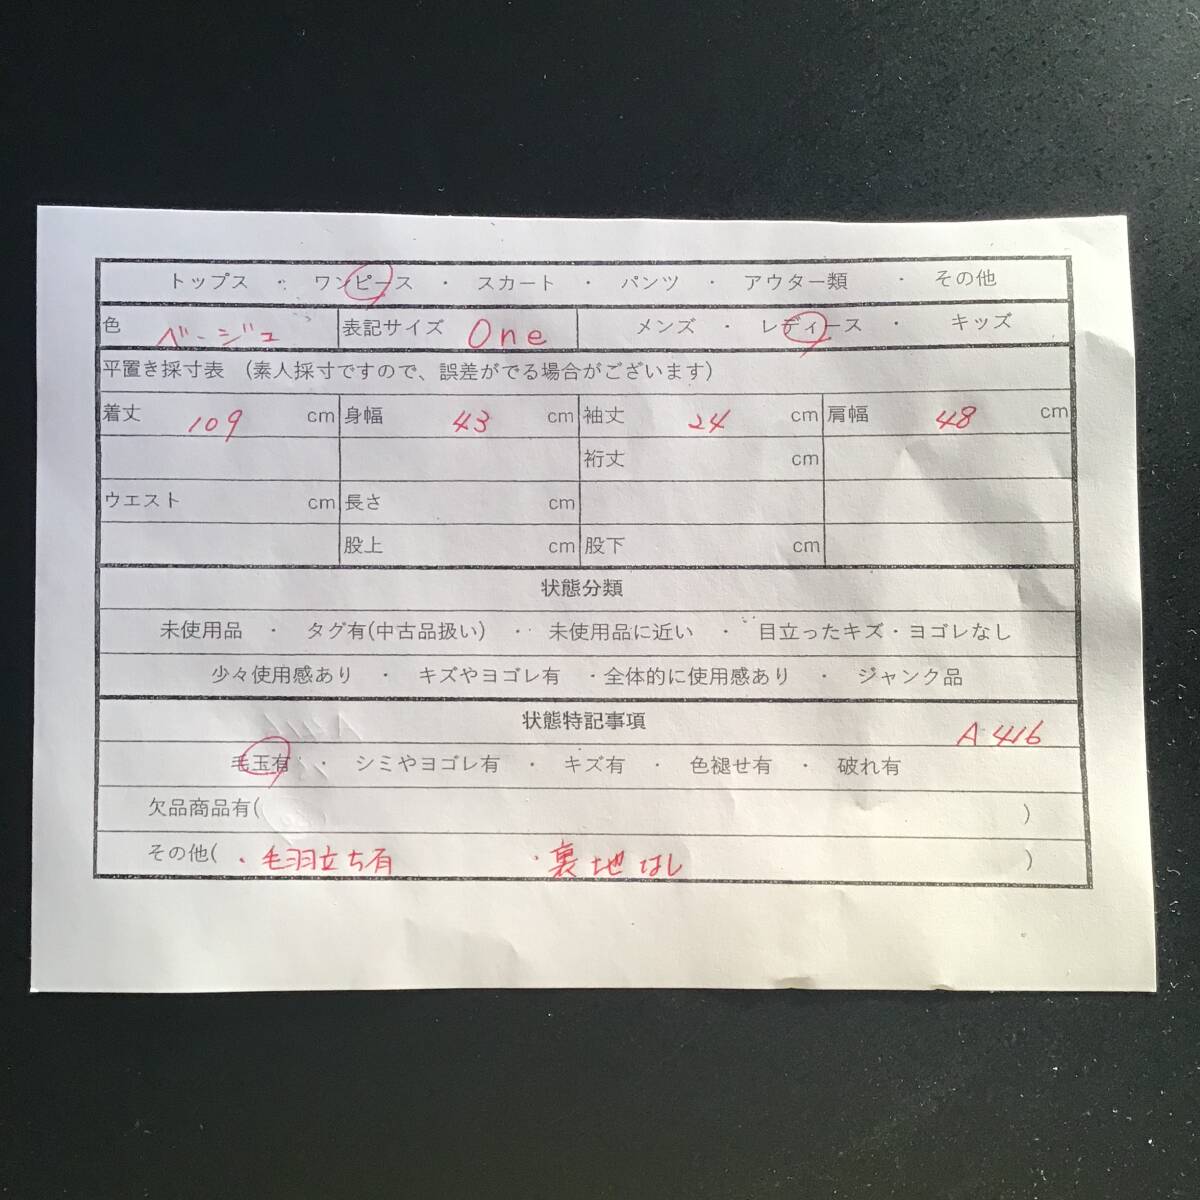 トップス ・ ワンピース ・ スカート ・ パンツ ・ アウター類 ・ その他
色 ベージュ 表記サイズ One メンズ ・ レディース ・ キッズ
平置き採寸表 (素人採寸ですので、誤差がでる場合がございます)
着丈 109 cm 身幅 43 cm 袖丈 24 cm 肩幅 48 cm
裄丈 cm
ウエスト cm 長さ cm
股上 cm 股下 cm
状態分類
未使用品 ・ タグ有(中古品扱い) ・ 未使用品に近い ・ 目立ったキズ・ヨゴレなし
少々使用感あり ・ キズやヨゴレ有 ・全体的に使用感あり ・ ジャンク品
状態特記事項 A416
毛玉有 ・ シミやヨゴレ有 ・ キズ有 ・ 色褪せ有 ・ 破れ有
欠品商品有( )
その他( ・毛羽立ち有 ・裏地なし )